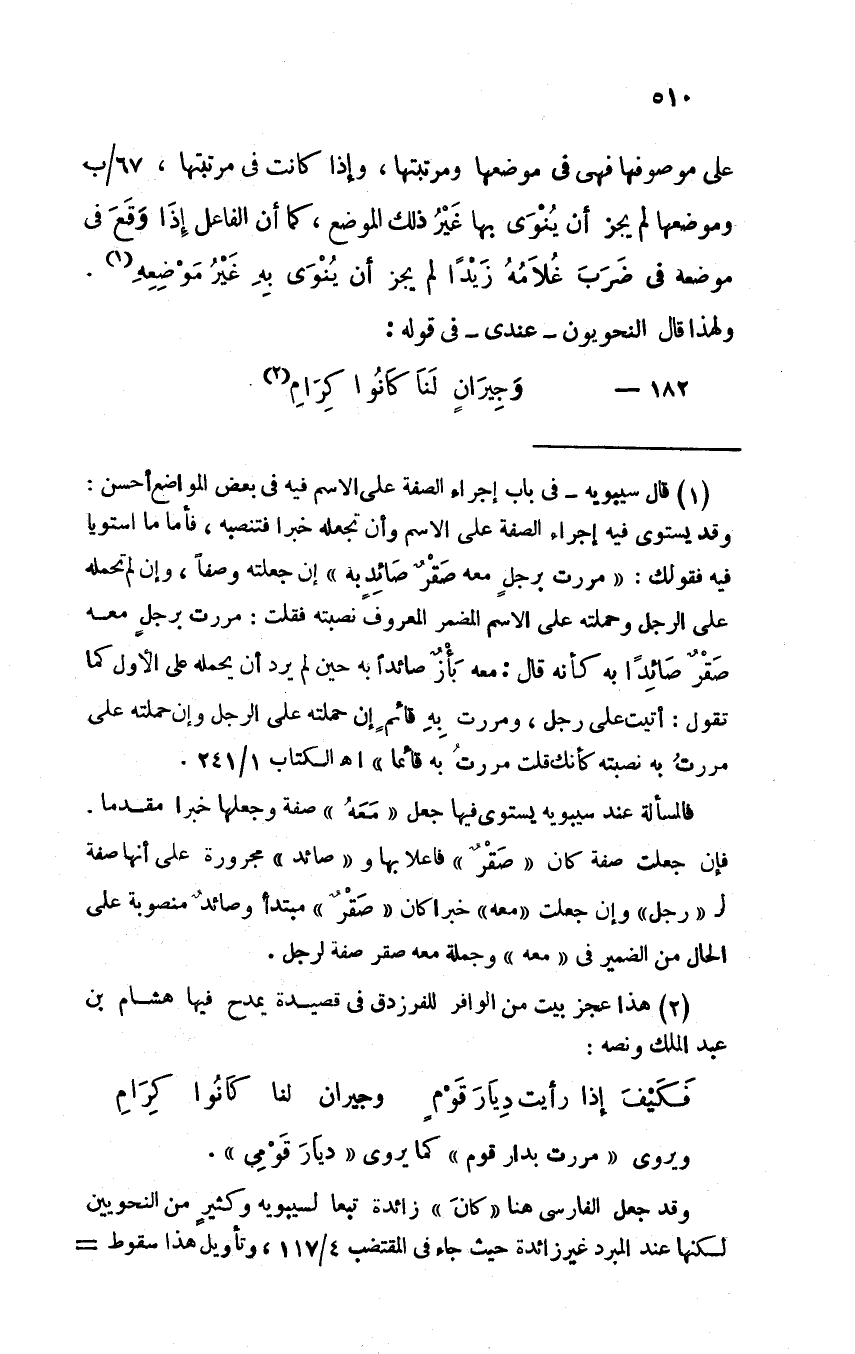 ٥١٠
على موصوفها فهى فى موضعها ومرتبتها ، وإذا كانت فى مرتبتها ، ٦٧/ب
وموضعها لم يجز أن يُنْوَى بها غَيْرُ ذلك الموضع ، كما أن الفاعل إِذَا وَقَعَ فى
موضعه فى ضَرَبَ غُلاَمُهُ زَيْدًا لم يجز أن يُنْوَى بِهِ غَيْرُ مَوْضِعِهِ(١) .
ولهذا قال النحويون ــ عندى ــ فى قوله :
١٨٢ — وَجِيرَانٍ لَنَا كَانُوا كِرَامِ(٢)
(١) قال سيبويه ــ فى باب إجراء الصفة على الاسم فيه فى بعض المواضع أحسن :
وقد يستوى فيه إجراء الصفة على الاسم وأن تجعله خبرا فتنصبه ، فأما ما استويا
فيه فقولك : « مررت برجلٍ معه صَقْرٌ صَائِدٍ به » إن جعلته وصفاً ، وإن لم تحمله
على الرجل وحملته على الاسم المضمر المعروف نصبته فقلت : مررت برجلٍ معه
صَقْرٌ صَائِدًا به كأنه قال : معه بَأْزٌ صائداً به حين لم يرد أن يحمله على الأول كما
تقول : أتيت على رجل ، ومررت بِهِ قائمٍ إن حملته على الرجل وإن حملته على
مررتُ به نصبته كأنك قلت مررتُ به قائما » اهـ الكتاب ٢٤١/١ .
فالمسألة عند سيبويه يستوى فيها جعل « مَعَهُ » صفة وجعلها خبرا مقدما .
فإن جعلت صفة كان « صَقْرٌ » فاعلا بها و « صائد » مجرورة على أنها صفة
لـ « رجل» وإن جعلت «معه» خبرا كان « صَقْرٌ » مبتدأ وصائدٌ منصوبة على
الحال من الضمير فى « معه » وجملة معه صقر صفة لرجل .
(٢) هذا عجز بيت من الوافر للفرزدق فى قصيدة يمدح فيها هشام بن
عبد الملك ونصه :
فَكَيْفَ إذا رأيت دِيَارَ قَوْمٍ وجيران لنا كَانُوا كِرَامِ
ويروى « مررت بدار قوم » كما يروى « ديَارَ قَوْمِى » .
وقد جعل الفارسى هنا «كانَ » زائدة تبعا لسيبويه وكثيرٍ من النحويين
لكنها عند المبرد غير زائدة حيث جاء فى المقتضب ١١٧/٤ ، وتأويل هذا سقوط =